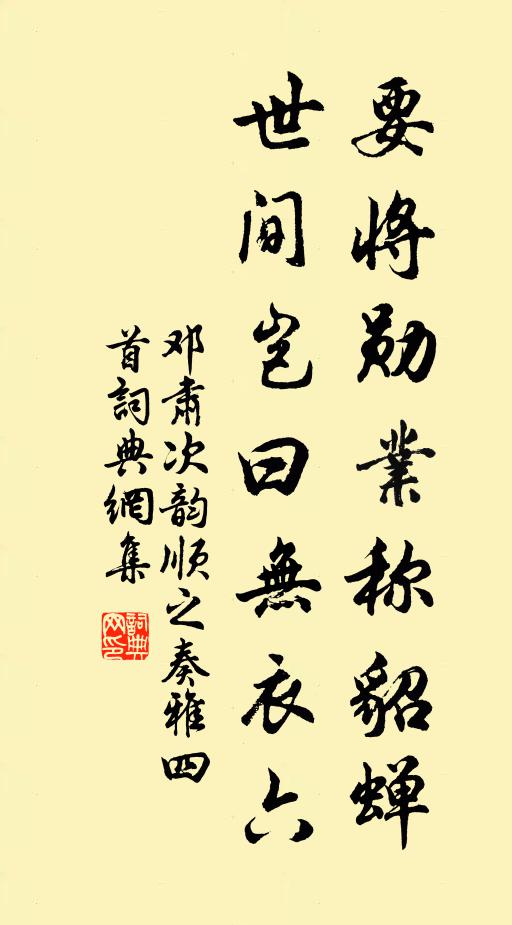 要将勋業称貂蝉
世间岂曰無衣六
邓肃次韵顺之奏雅四
首詞典網集
詞典网印